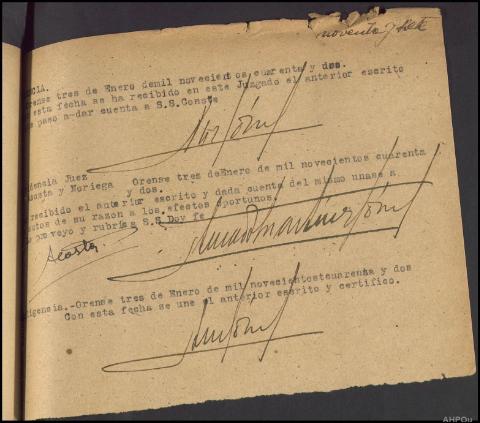 noventa y siete
NCIA.
Orense tres de Enero demil novecientos cuarenta y dos.
esta fecha se ha recibido en este Juzgado el anterior escrito
paso a dar cuenta a S.S.Conste
dencia Juez
Acosta y Noriega Orense tres deEnero de mil novecientos cuarenta
y dos.
recibido el anterior escrito y dada cuenta del mismo unase a
autos de su razon a los efectos oportunos.
proveyo y rubrica S.S.Doy fe
Acosta
igencia.-Orense tres de Enero de mil novecientostcuarenta y dos
Con esta fecha se une el anterior escrito y certifico.
AHPOu